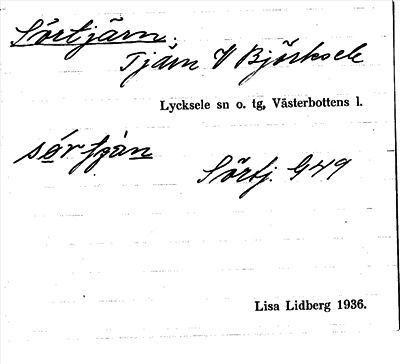 Sörtjärn.
Tjärn V Björksele
Lycksele sn o. tg, Västerbottens l.
Sörtj. G49
Lisa Lidberg 1936.